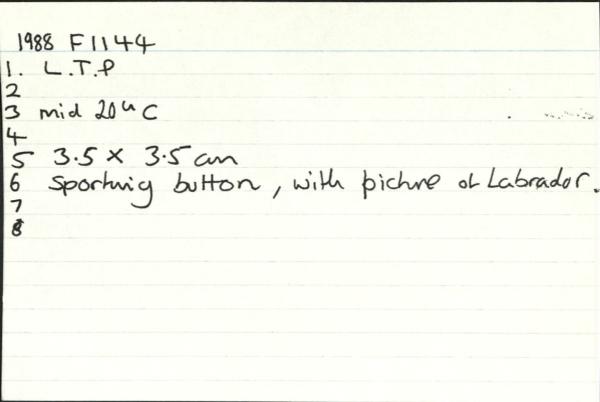 1988 F1144
1. L.T.P
2
3 mid 20th C
4
5 3.5 x 3.5 cm
6 Sporting button, with picture of Labrador.
7
8